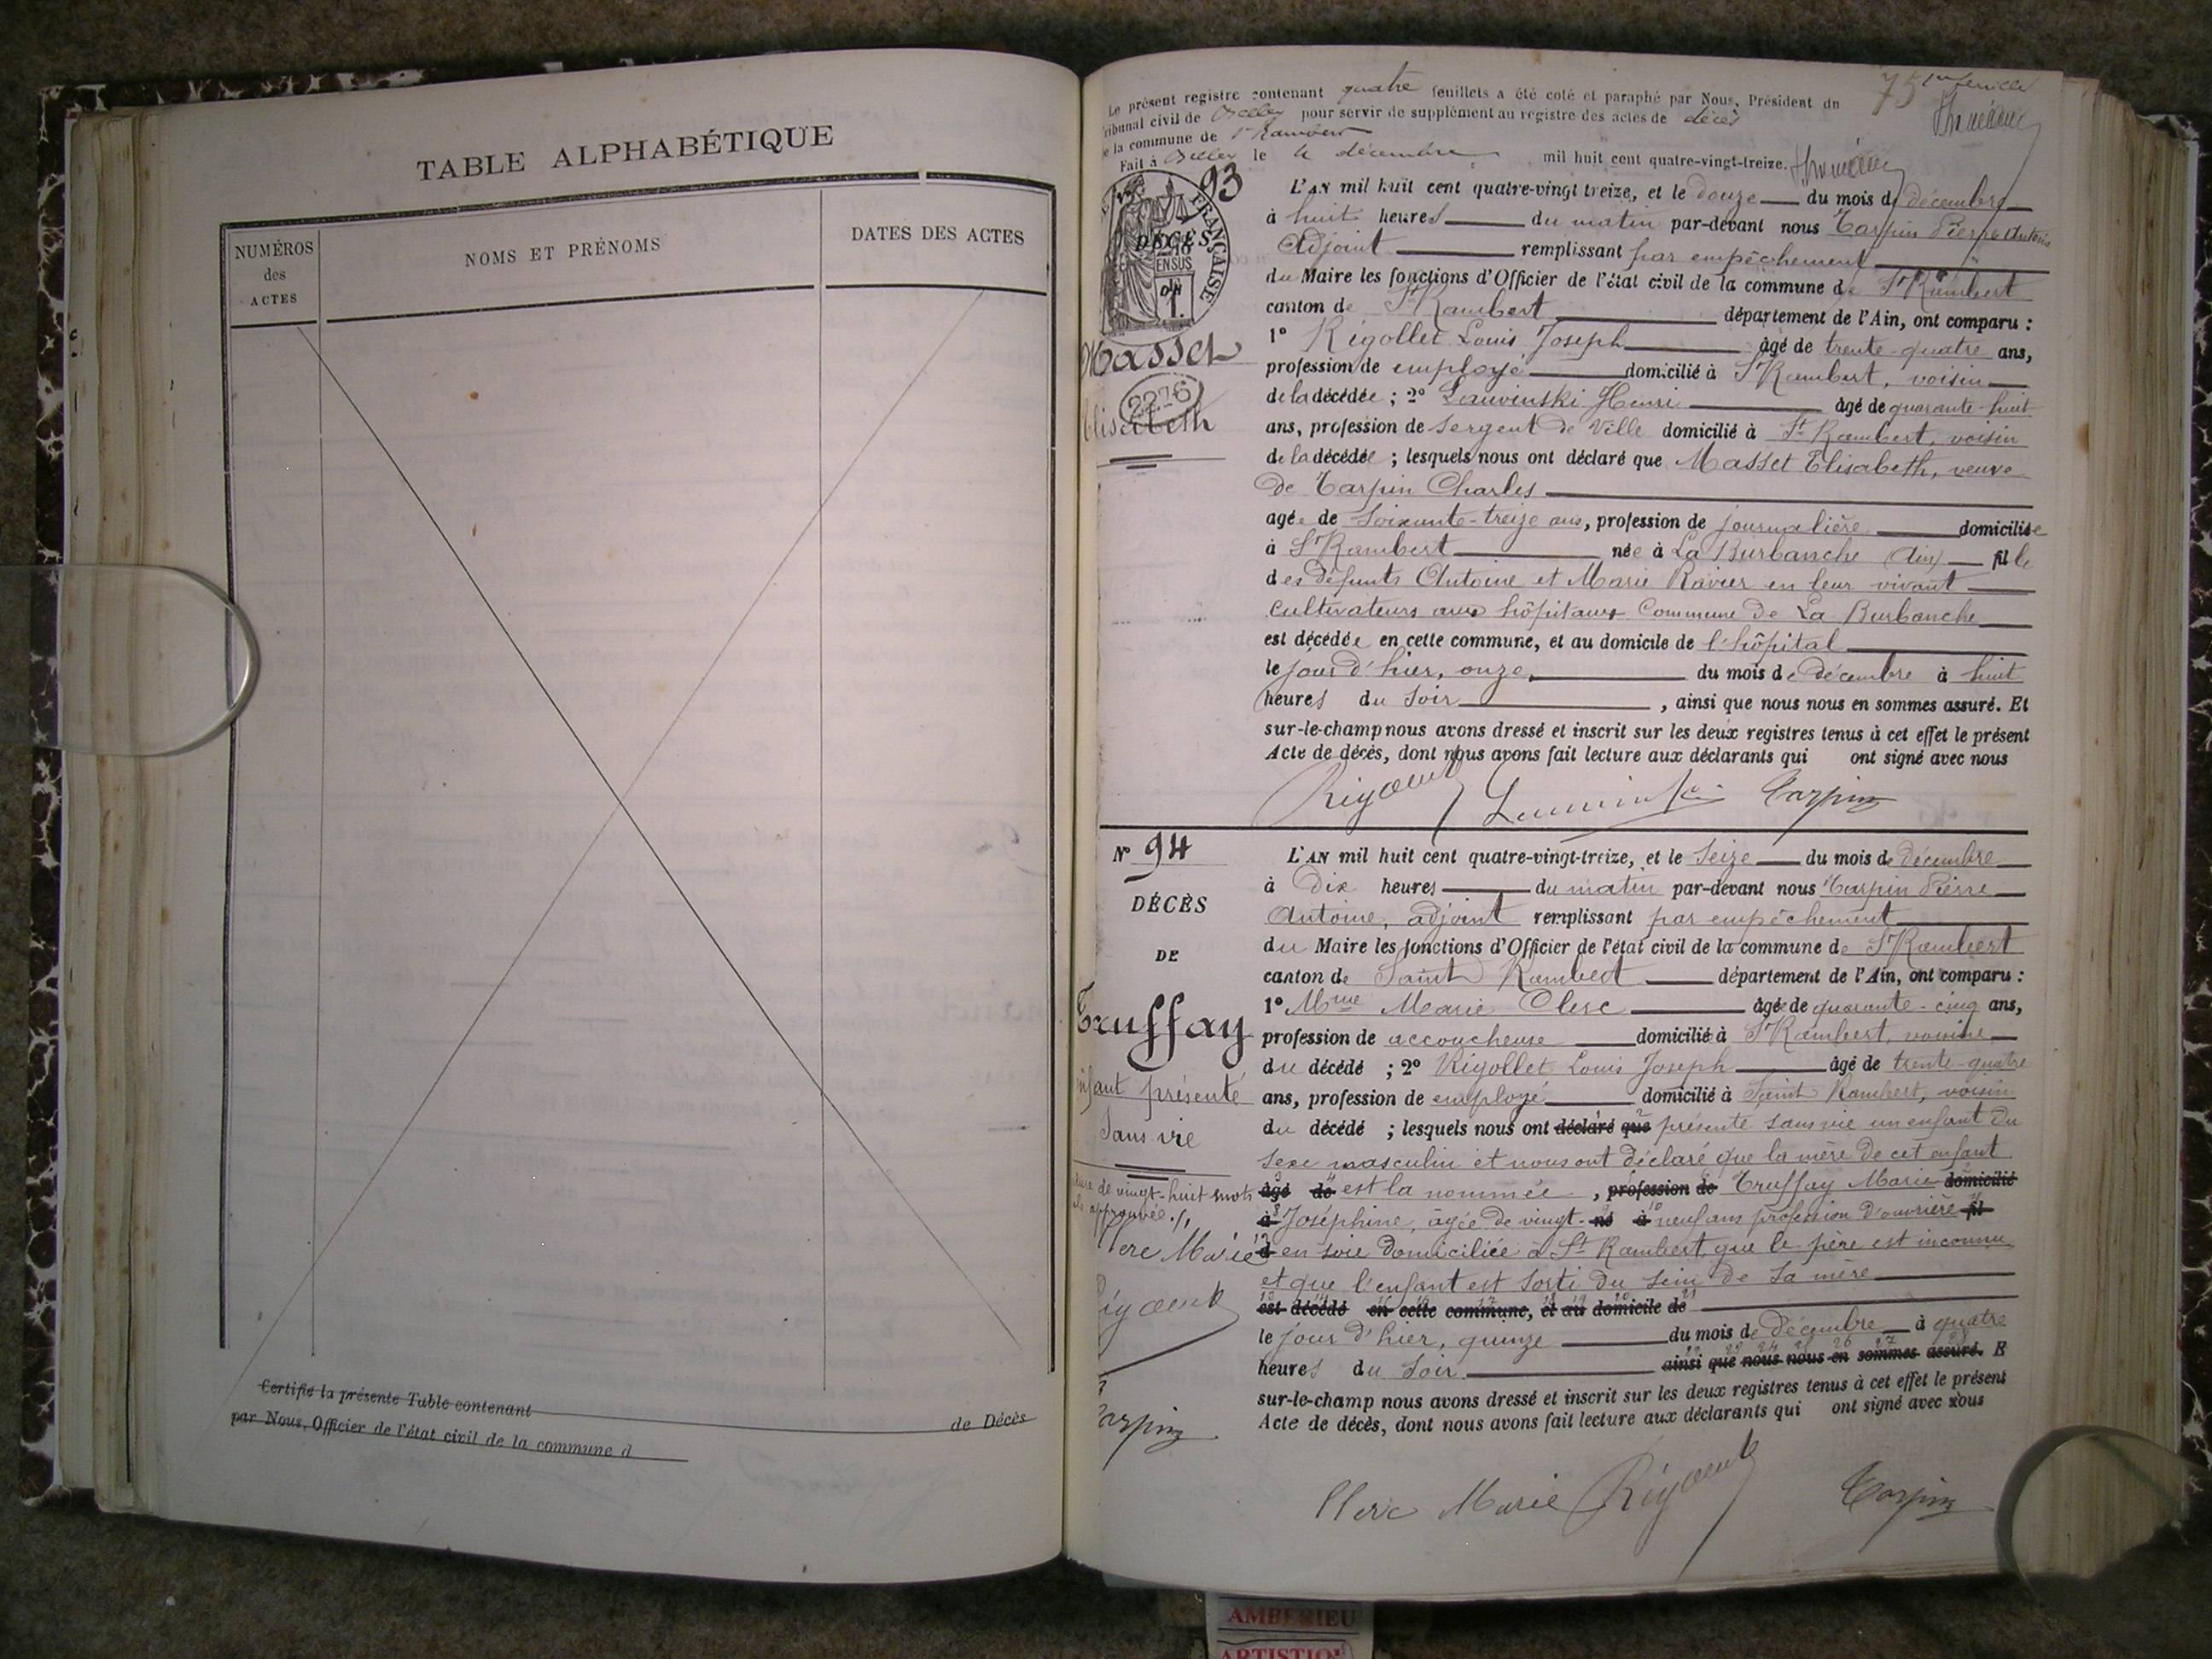 TABLE ALPHABÉTIQUE
NUMÉROS
des
ACTES
NOMS ET PRÉNOMS
DATES DES ACTES
Certifié la présente Table contenant de Décès
par Nous, Officier de l'état civil de la commune d
75
Le présent registre contenant quatre feuillets a été coté et paraphé par Nous, Président du
Tribunal civil de Belley pour servir de supplément au registre des actes de décès
de la commune de St Rambert
Fait à Belley le 4 décembre mil huit cent quatre-vingt-treize.
93
FRANÇAISE
DÉCÈS
DE
Masset
2276
Elisabeth
L'AN mil huit cent quatre-vingt treize, et le douze du mois de décembre
à huit heures du matin par-devant nous Tarpin Pierre Antoine
Adjoint remplissant par empêchement
du Maire les fonctions d'Officier de l'état civil de la commune de St Rambert
canton de St Rambert département de l'Ain, ont comparu :
1° Rigollet Louis Joseph âgé de trente-quatre ans,
profession de employé domicilié à St Rambert, voisin
de la décédée ; 2° Lauvinski Henri âgé de quarante-huit
ans, profession de Sergent de Ville domicilié à St Rambert, voisin
de la décédée ; lesquels nous ont déclaré que Masset Elisabeth, veuve
de Tarpin Charles
agée de Soixante-treize ans, profession de journalière domiciliée
à St Rambert née à La Burbanche (Ain) fille
des défunts Antoine et Marie Ravier en leur vivant
cultivateurs aux hôpitaux Commune de La Burbanche
est décédée en cette commune, et au domicile de l'hôpital
le jour d'hier, onze, du mois de décembre à huit
heures du soir , ainsi que nous nous en sommes assuré. Et
sur-le-champ nous avons dressé et inscrit sur les deux registres tenus à cet effet le présent
Acte de décès, dont nous avons fait lecture aux déclarants qui ont signé avec nous
Tarpin
N° 94
DÉCÈS
DE
Truffay
enfant présenté
Sans vie
de vingt-huit mots
approuvée ./.
Clerc Marie
Tarpin
L'AN mil huit cent quatre-vingt-treize, et le Seize du mois de décembre
à Dix heures du matin par-devant nous Tarpin Pierre
Antoine, adjoint remplissant par empêchement
du Maire les fonctions d'Officier de l'état civil de la commune de St Rambert
canton de Saint Rambert département de l'Ain, ont comparu :
1° Mme Marie Clerc âgée de quarante-cinq ans,
profession de accoucheuse domiciliée à St Rambert, voisine
du décédé ; 2° Rigollet Louis Joseph âgé de trente-quatre
ans, profession de employé domicilié à Saint Rambert, voisin
du décédé ; lesquels nous ont déclaré que présenté sans vie un enfant du
sexe masculin et nous ont déclaré que la mère de cet enfant
âgé de est la nommée , profession de Truffay Marie domicilié
à Joséphine, âgée de vingt- né à neuf ans profession d'ouvrière fil
d en soie domiciliée à St Rambert, que le père est inconnu
et que l'enfant est sorti du sein de sa mère
est décédé en cette commune, et au domicile de
le jour d'hier, quinze du mois de décembre à quatre
heures du soir ainsi que nous nous en sommes assuré. E
sur-le-champ nous avons dressé et inscrit sur les deux registres tenus à cet effet le présent
Acte de décès, dont nous avons fait lecture aux déclarants qui ont signé avec nous
Clerc Marie Tarpin
AMBERIEU